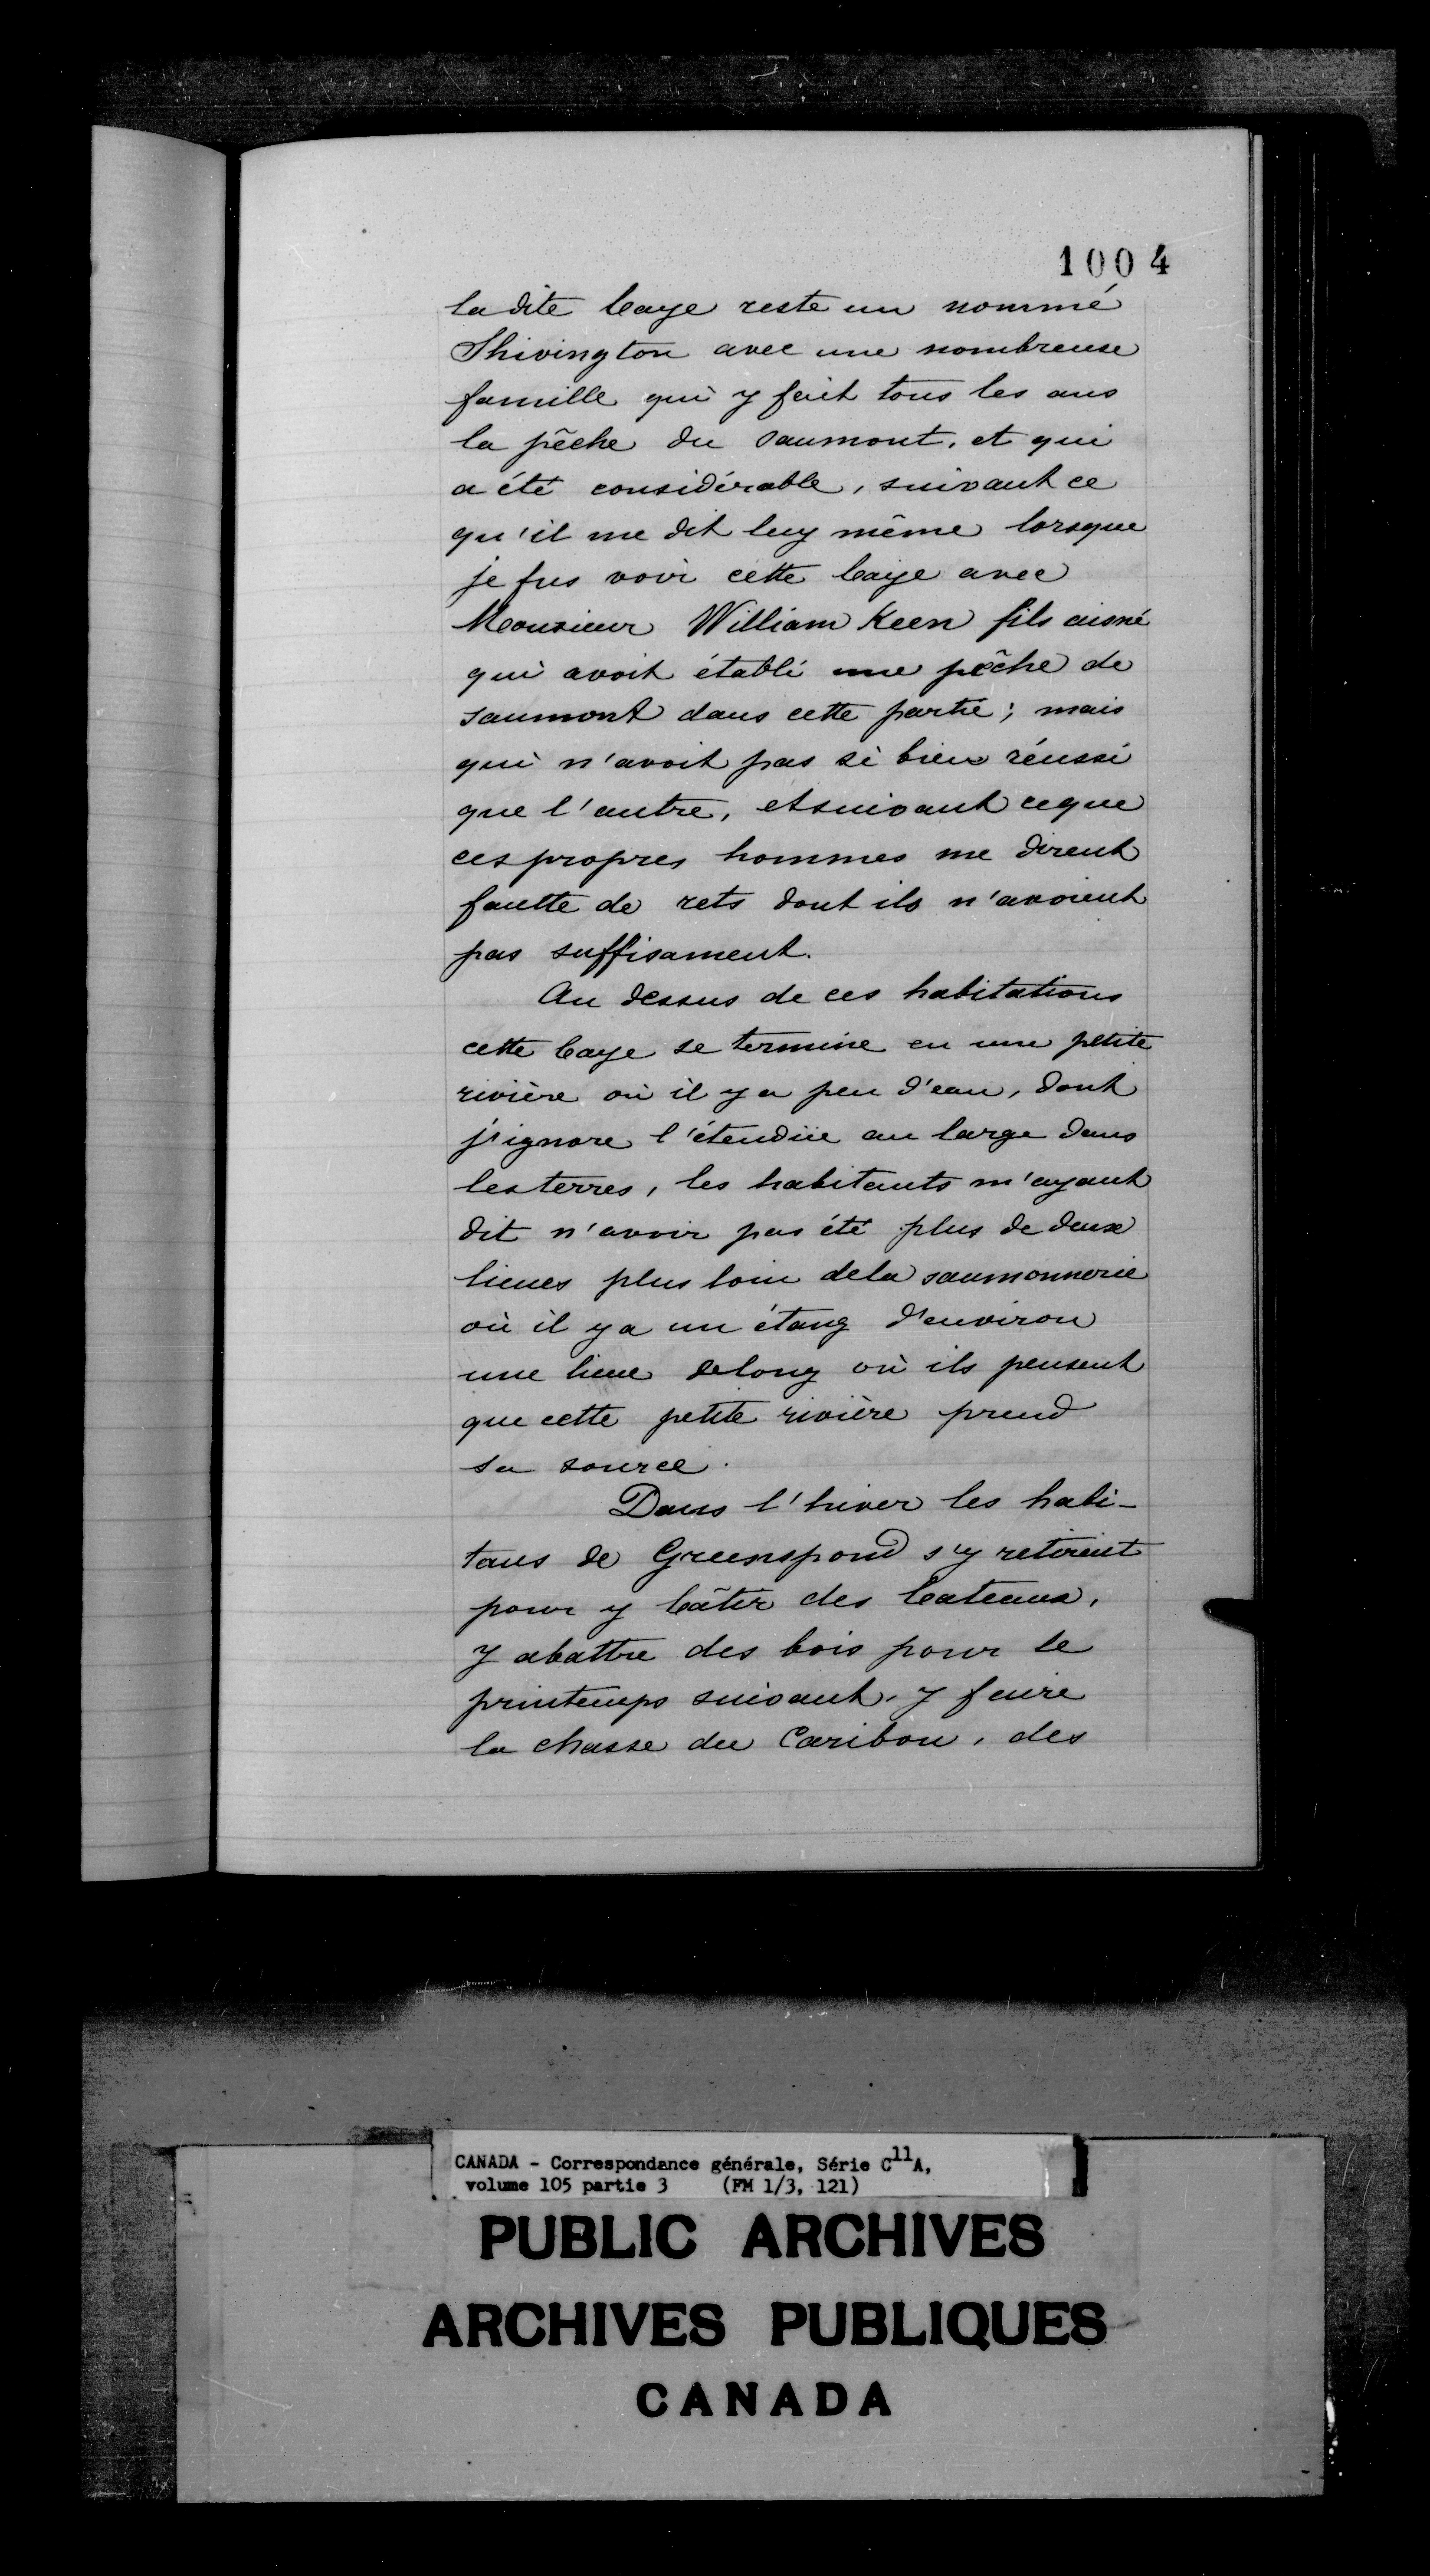 1004
la dite baye reste un nommé
Shivington avec une nombreuse
famille qui y fait tous les ans
la pêche du saumont, et qui
a été considérable, suivant ce
qu'il me dit luy même lorsque
je fus voir cette baye avec
Monsieur William Keen fils aisné
qui avoit établi une pêche de
saumont dans cette partie; mais
qui n'avoit pas si bien réussi
que l'autre, et suivant ce que
ces propres hommes me dirent
fautte de rets dont ils n'avoient
pas suffisament.
Au dessus de ces habitations
cette baye se termine en une petite
rivière où il y a peu d'eau, dont
j'ignore l'étendüe au large dans
les terres, les habitants m'ayant
dit n'avoir pas été plus de deux
lieues plus loin de la saumonnerie
où il y a un étang d'environ
une lieue de long où ils pensent
que cette petite rivière prend
sa source.
Dans l'hiver les habi-
tans de Greenspond s'y retirent
pour y bâtir des bateaux,
y abattre des bois pour le
printemps suivant, y faire
la chasse du Caribou, des
CANADA - Correspondance générale, Série C11A,
volume 105 partie 3 (FM 1/3, 121)
PUBLIC ARCHIVES
ARCHIVES PUBLIQUES
CANADA